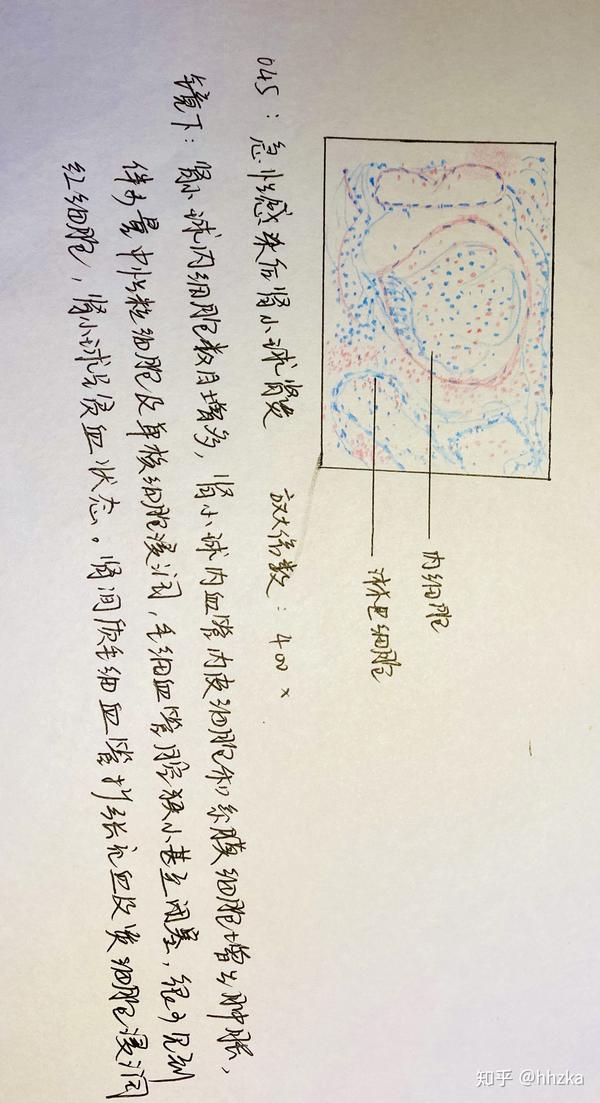 内细胞
淋巴细胞
045:急性感染后肾小球肾炎 放大倍数:400×
镜下:肾小球内细胞数目增多,肾小球内血管内皮细胞和系膜细胞增生肿胀,
伴少量中性粒细胞及单核细胞浸润,毛细血管腔狭小甚至闭塞,很少见到
红细胞,肾小球呈贫血状态。肾间质毛细血管扩张充血及炎细胞浸润
知乎 @hhzka